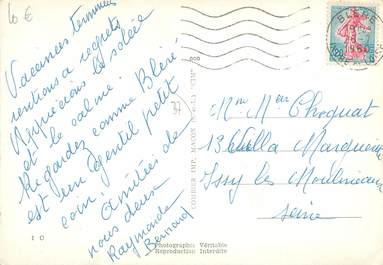 10 €
Vacances terminées
rentrons à regrets
Apprécions le soleil
et le calme.
Regardez comme Bléré
est un gentil petit
coin. Amitiés de
nous deux
Raymonde
Bernard
37
COMBIER IMP. MACON "CIM"
BLÉRÉ
Mme Mer Choquat
13 Villa Marguerite
Issy les Moulineaux
Seine
1 C
Photographie Véritable
Reproduction Interdite